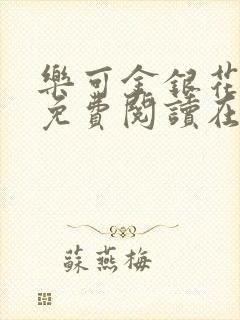 樂可金銀花
免費閱讀在
蘇燕梅